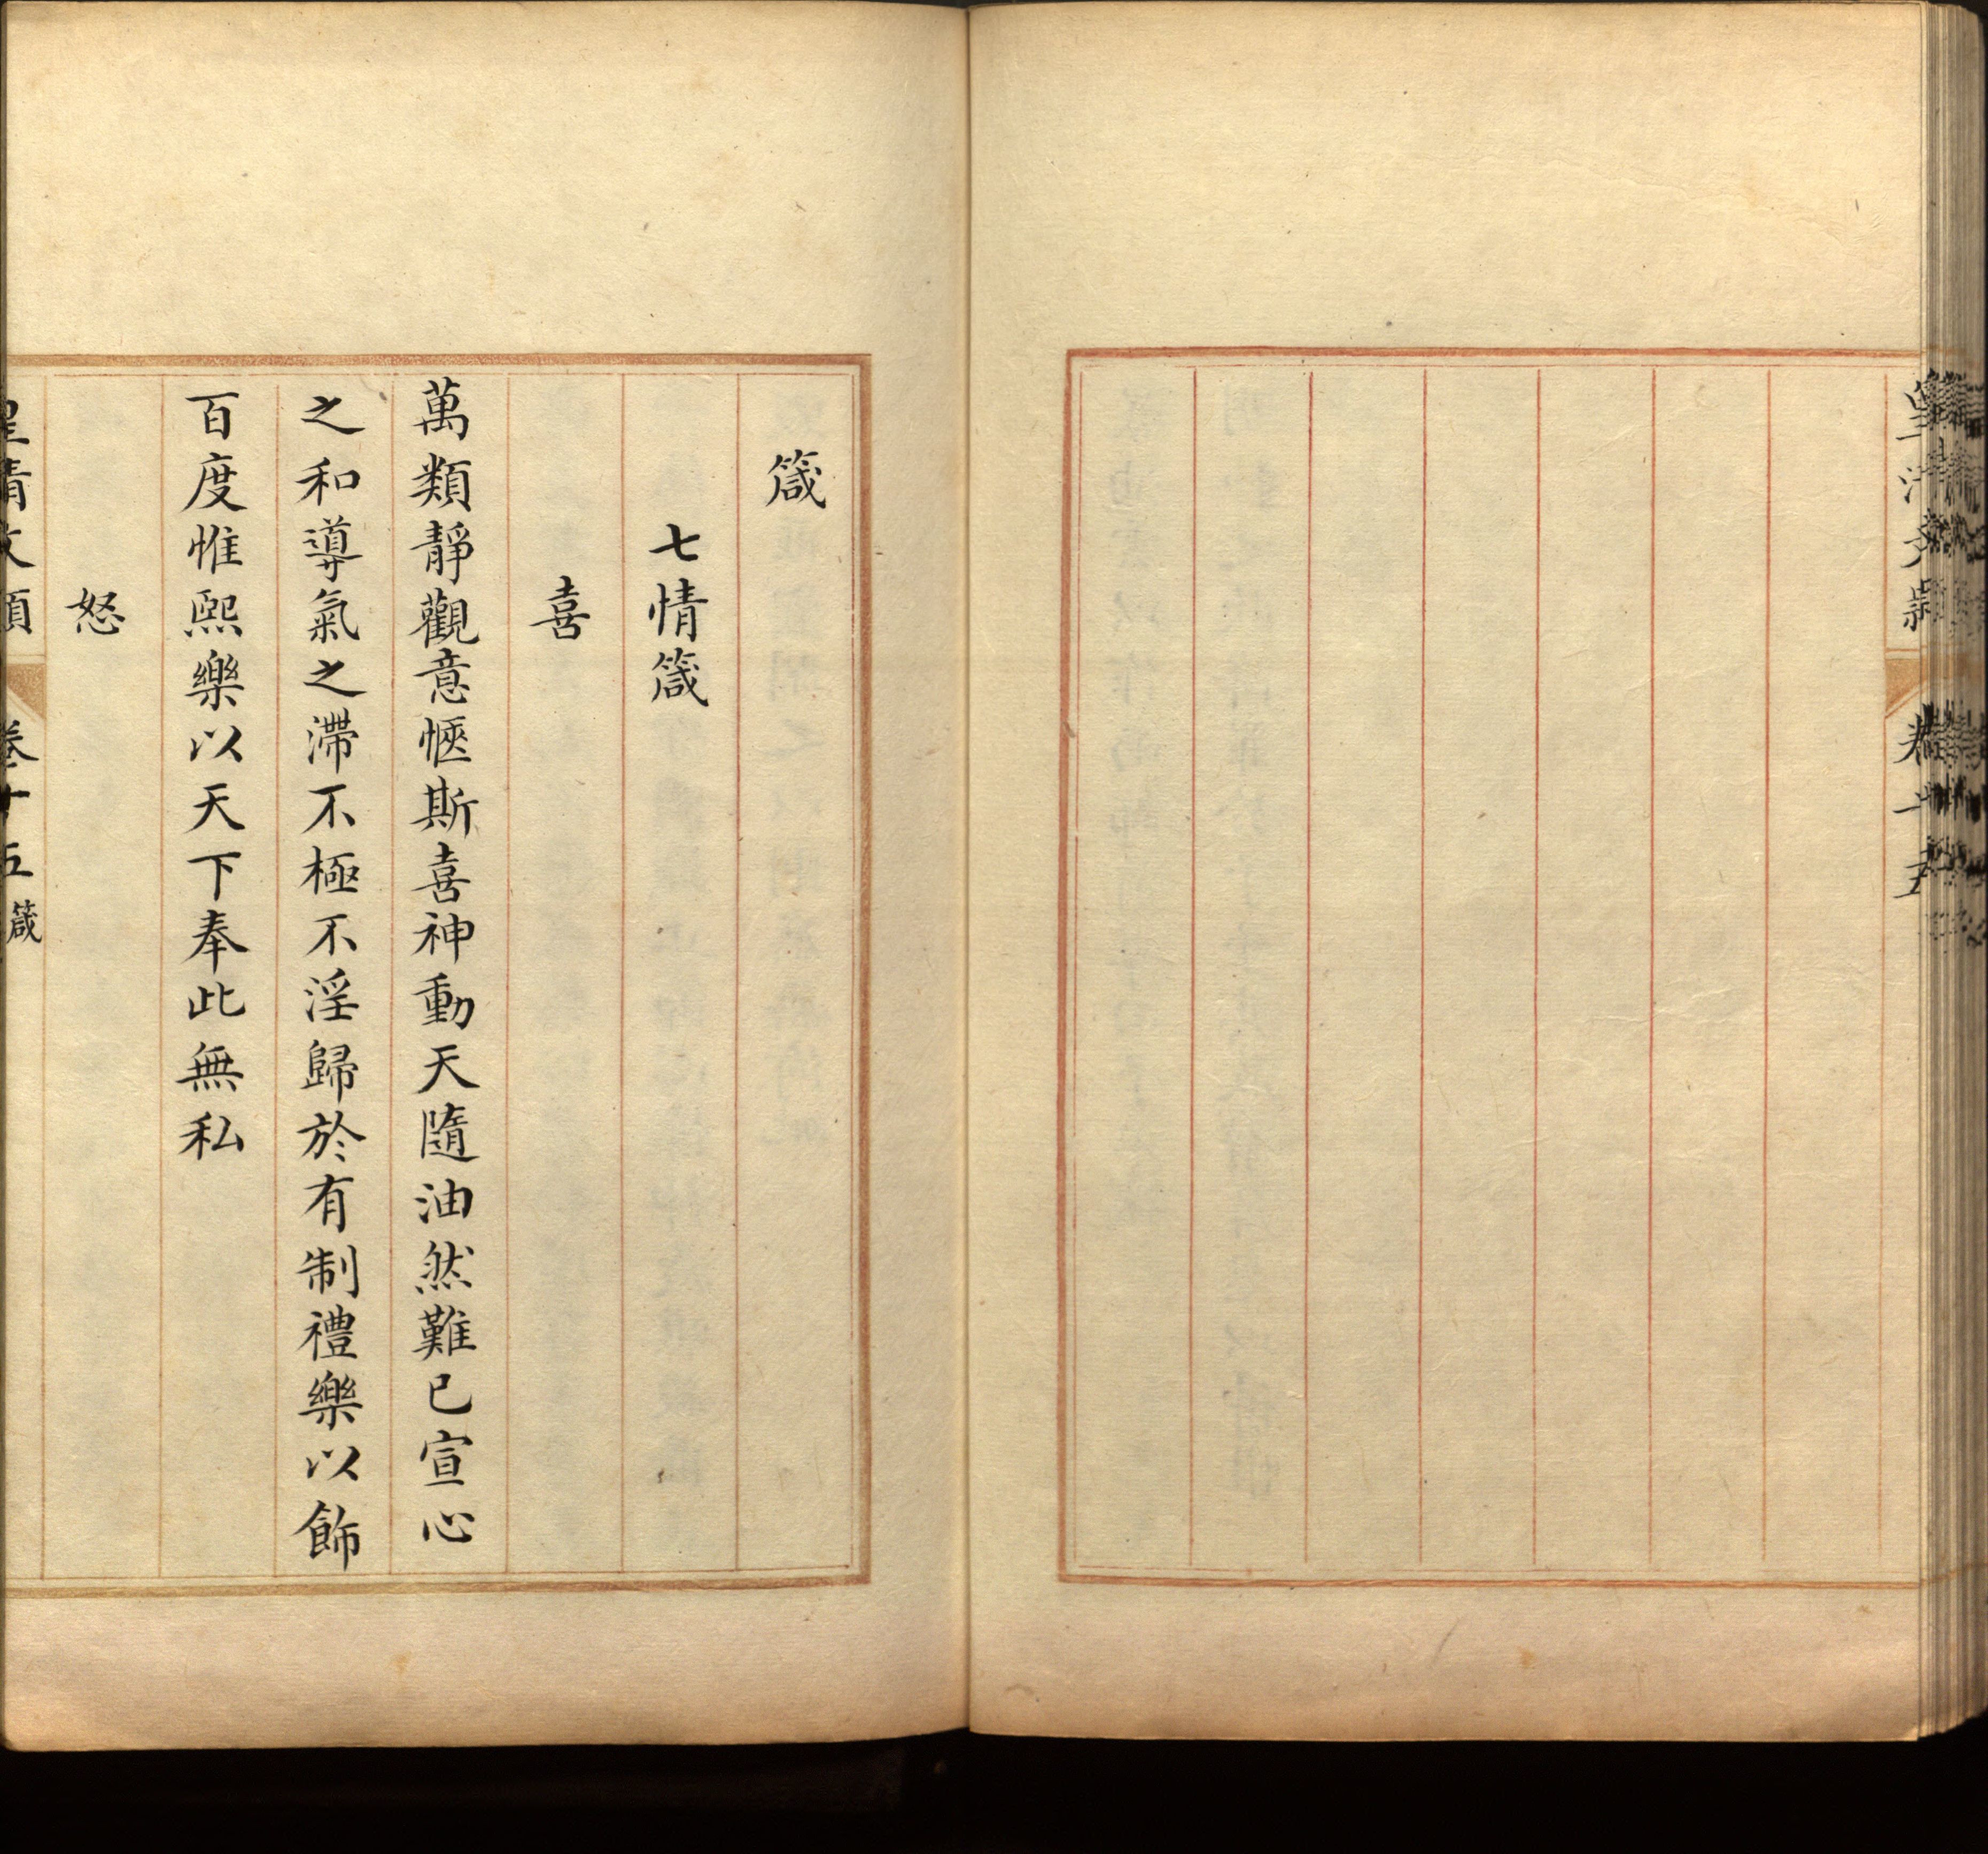 箴
七情箴
喜
萬類靜觀意愜斯喜神動天隨油然難已宣心
之和導氣之滯不極不淫歸於有制禮樂以飾
百度惟熙樂以天下奉此無私
怒
皇清文穎 卷十五 箴
皇清文穎 卷十五